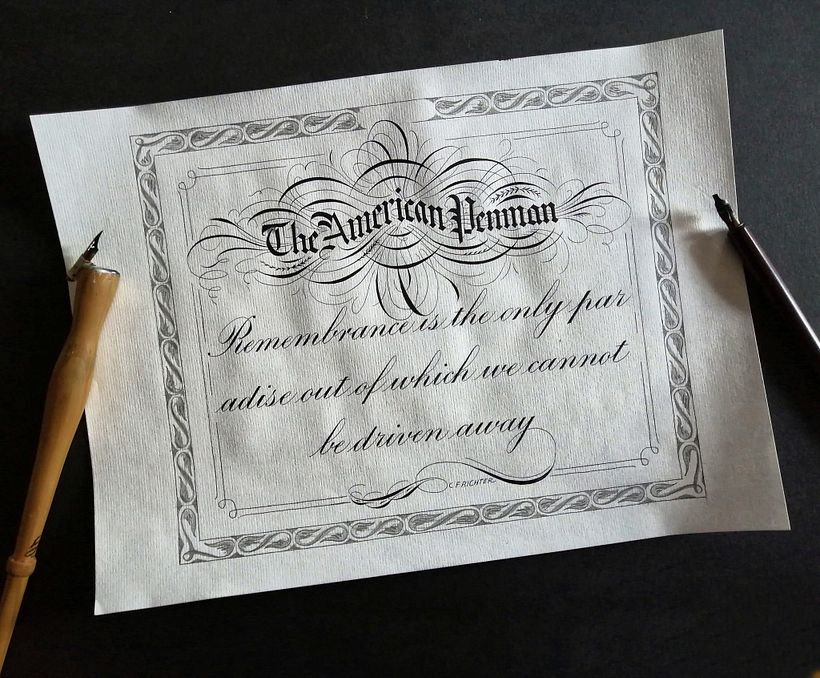 The American Penman
Remembrance is the only par
adise out of which we cannot
be driven away
C.F.RICHTER